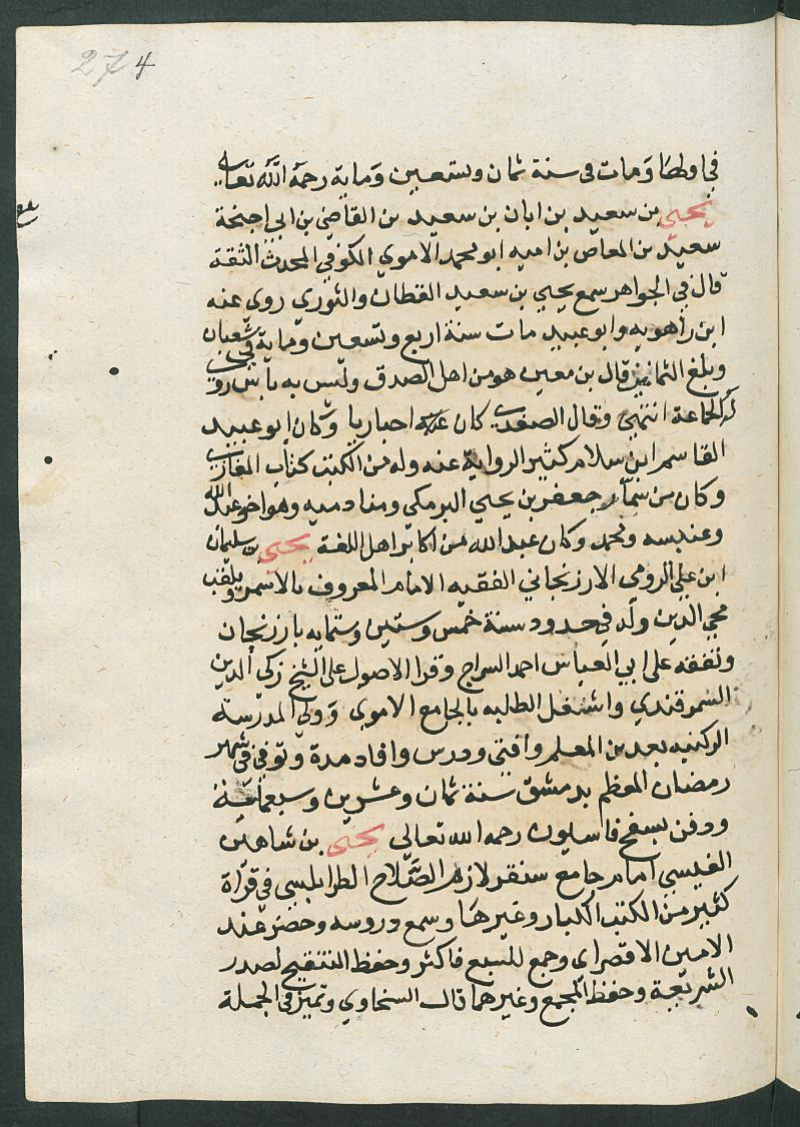 274
في اولها ومات في سنة ثمان وتسعين وماية رحمه الله تعالى
يحيى بن سعيد بن ابان بن سعيد بن القاضي بن ابي اجنحة
سعيد بن العاص بن اميه ابو محمد الاموي الكوفي المحدث الثقة
قال في الجواهر سمع يحيى بن سعيد القطان والثوري روى عنه
ابن راهويه وابو عبيد مات سنة اربع وتسعين وماية في شعبان
وبلغ الثمانين قال بن معين هو من اهل الصدق وليس به باس روى
له الجماعة انتهى وقال الصفدي كان اخباريا وكان ابو عبيد
القاسم ابن سلام كثير الرواية عنه وله من الكتب كتاب المغازي
وكان من سمار جعفر بن يحيى البرمكي ومنادميه وهو اخو عبد الله
وعنبسه ومحمد وكان عبد الله من اكابر اهل اللغة يحيى بن سليمان
ابن علي الرومي الارزنجاني الفقيه الامام المعروف بالاسمر ويلقب
محي الدين ولد في حدود سنة خمس وستين وستمايه بارزنجان
وتفقه على ابي العباس احمد السراج وقرا الاصول على الشيخ زكي الدين
السمرقندي واشتغل الطلبه بالجامع الاموي وولي المدرسه
الركنيه بعد بن المعلم وافتى ودرس وافاد مدة وتوفي في شهر
رمضان المعظم بدمشق سنة ثمان وعشرين وسبعمائة
ودفن بسفح قاسيون رحمه الله تعالى يحيى بن شاهين
القيسي امام جامع سنقر لازم الصلاح الطرابلسي في قراة
كثير من الكتب الكبار وغيرها وسمع دروسه وحضر عند
الامين الاقصراي وجمع للسبع فاكثر وحفظ التنقيح لصدر
الشريعة وحفظ المجمع وغيرهما قال السخاوي وتميز في الجملة